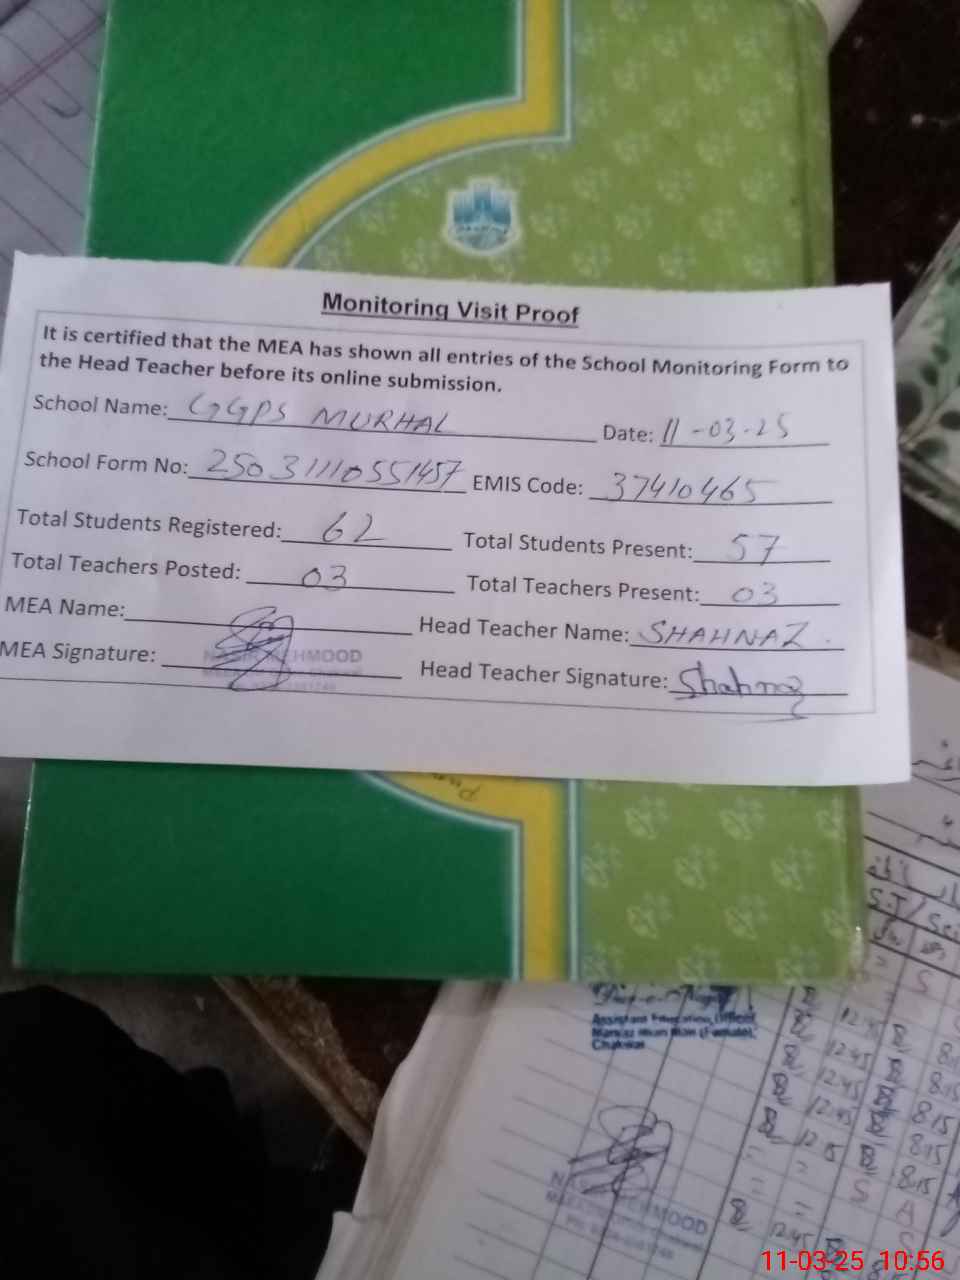 Monitoring Visit Proof
It is certified that the MEA has shown all entries of the School Monitoring Form to
the Head Teacher before its online submission.
School Name: GGPS MURHAL Date: 11-03-25
School Form No: 25031110551457 EMIS Code: 37410465
Total Students Registered: 62 Total Students Present: 57
Total Teachers Posted: 03 Total Teachers Present: 03
MEA Name: Head Teacher Name: SHAHNAZ.
MEA Signature: NASIR MEHMOOD Head Teacher Signature: Shahnaz
Assistant Education Officer
(Female),
Chakwal
12:45 8:15
12:45 8:15
12:45 8:15
12:15 8:15
S A
12:45
MEHMOOD
11-03-25 10:56